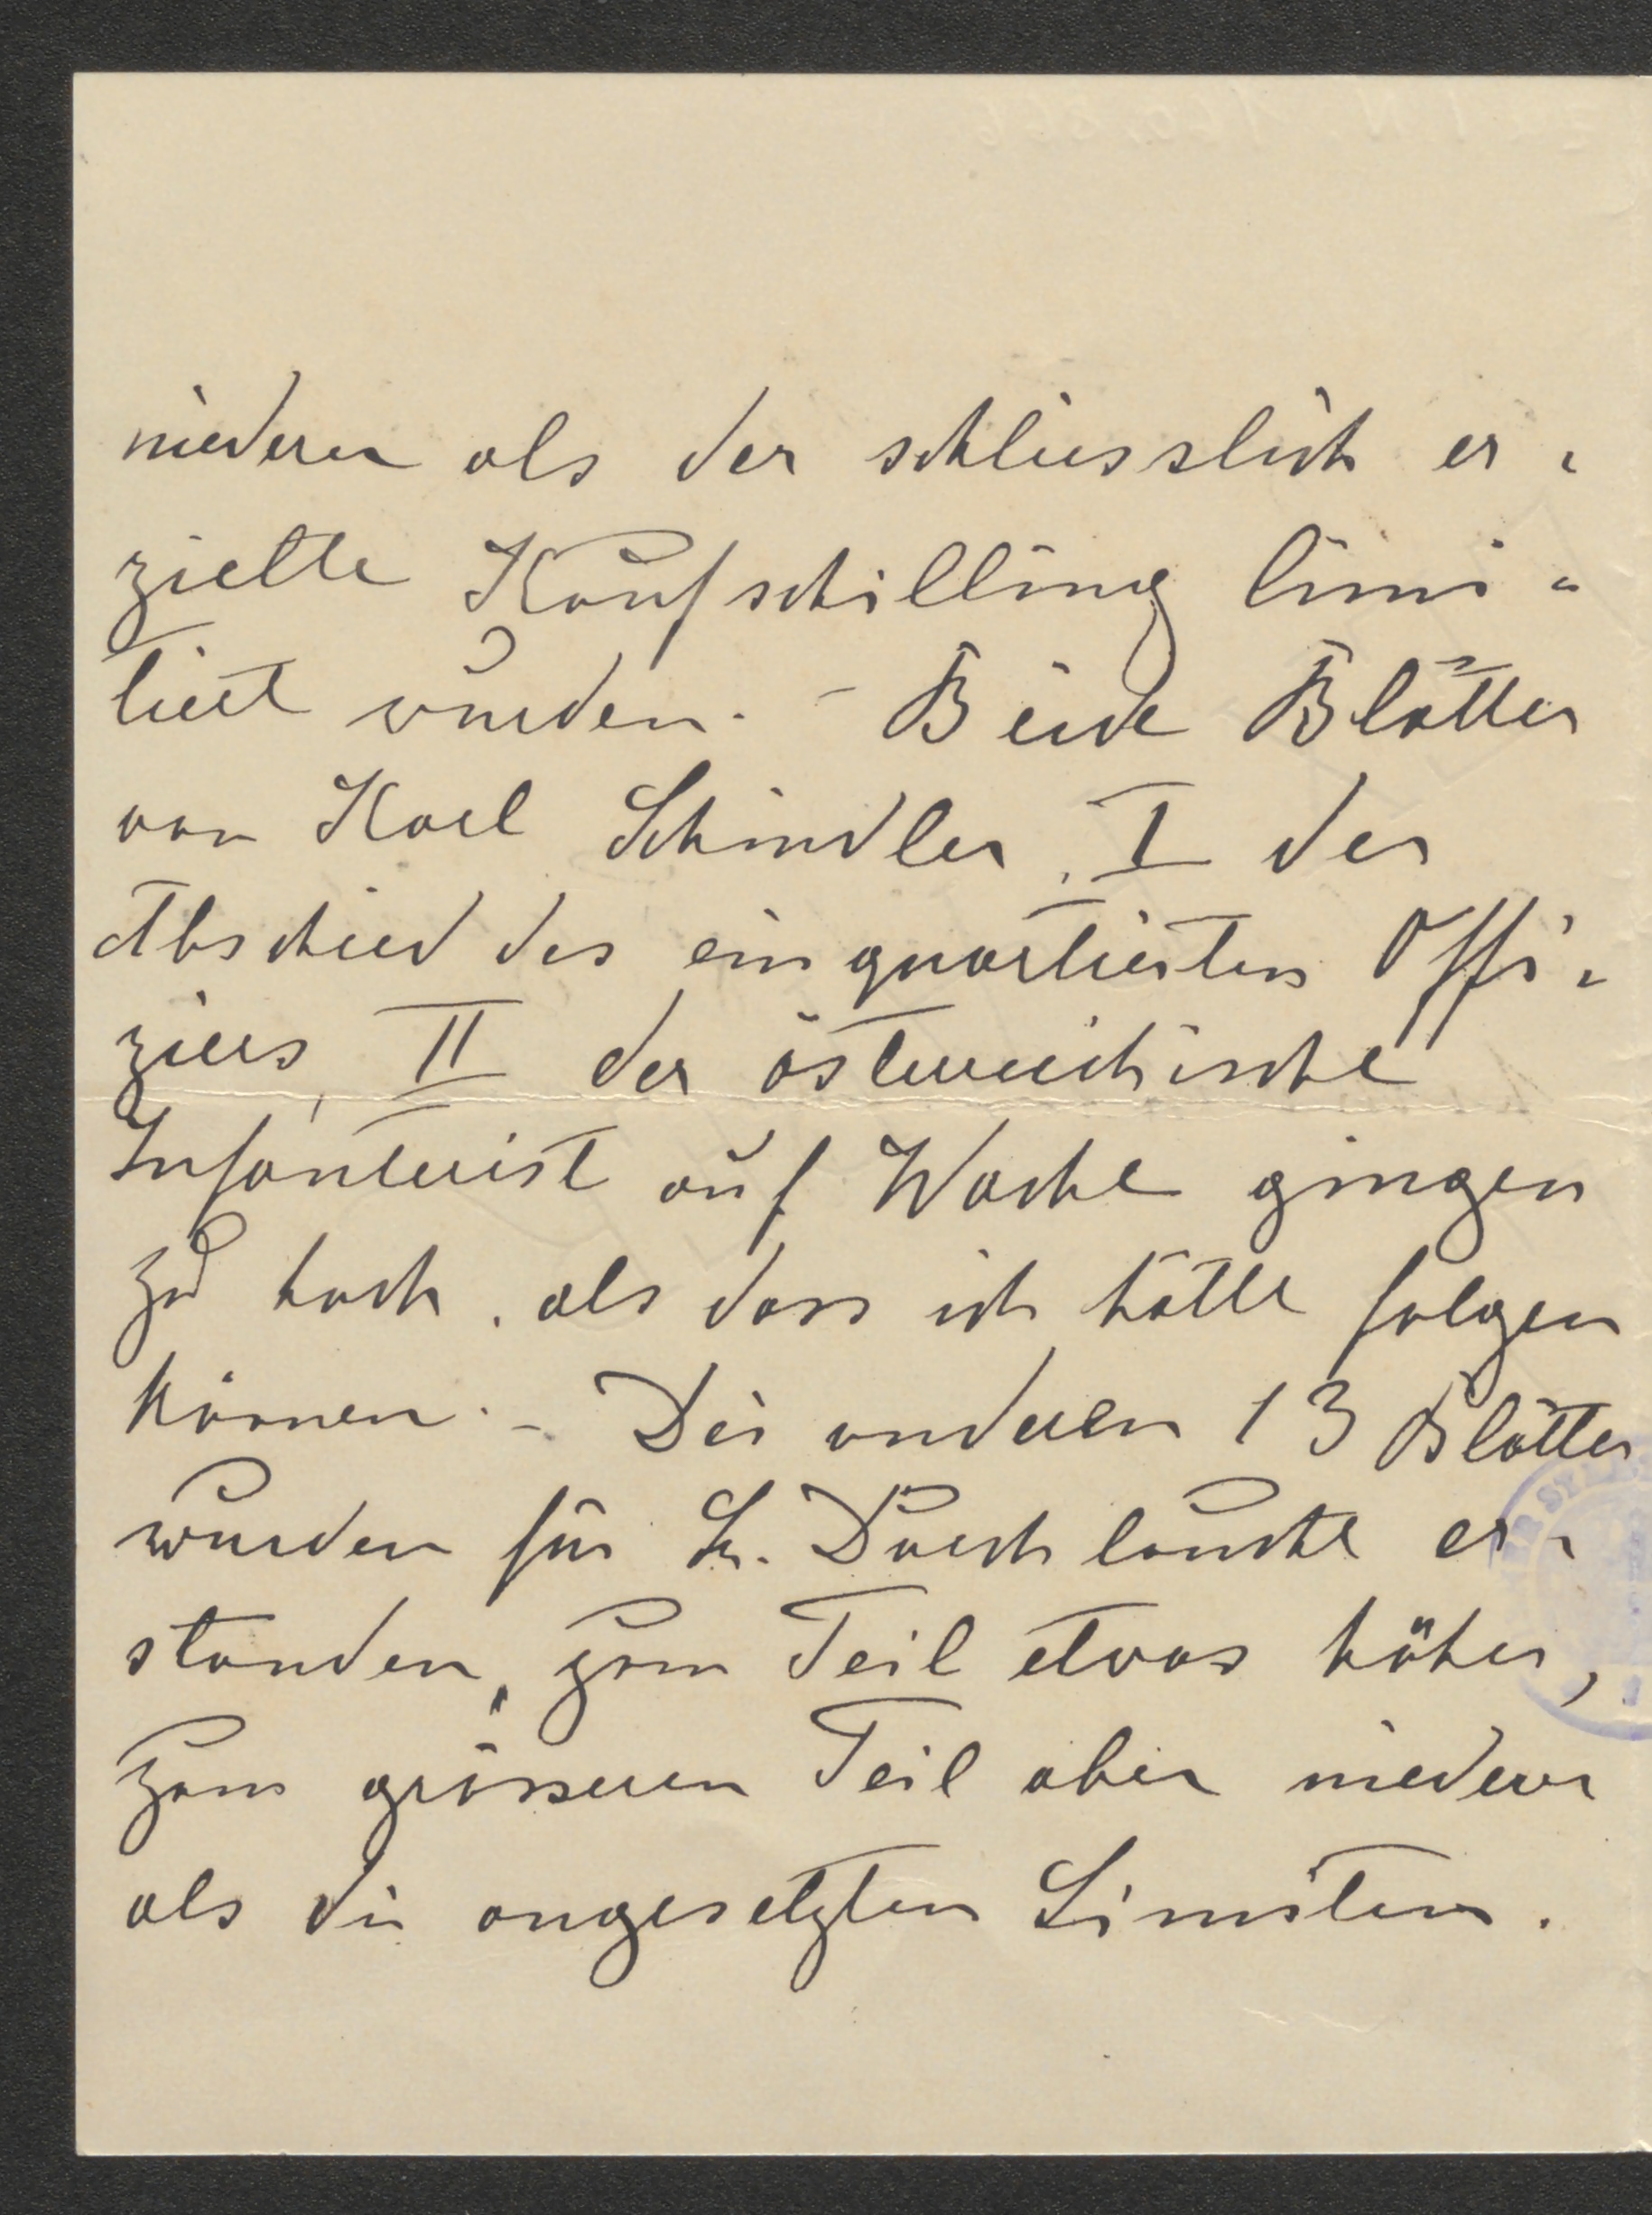 niederer als der schliesslich er-
zielte Kaufschilling limi-
tiert wurden. - Beide Blätter
von Karl Schindler, I der
Abschied des einquartierten Offi-
ziers, II der österreichische
Infanterist auf Wache gingen
zu hoch, als dass ich hätte folgen
können. - Die anderen 13 Blätter
wurden für Sr. Durchlaucht er-
standen, zum Teil etwas höher,
zum grösseren Teil aber niederer
als die angesetzten Limiten.